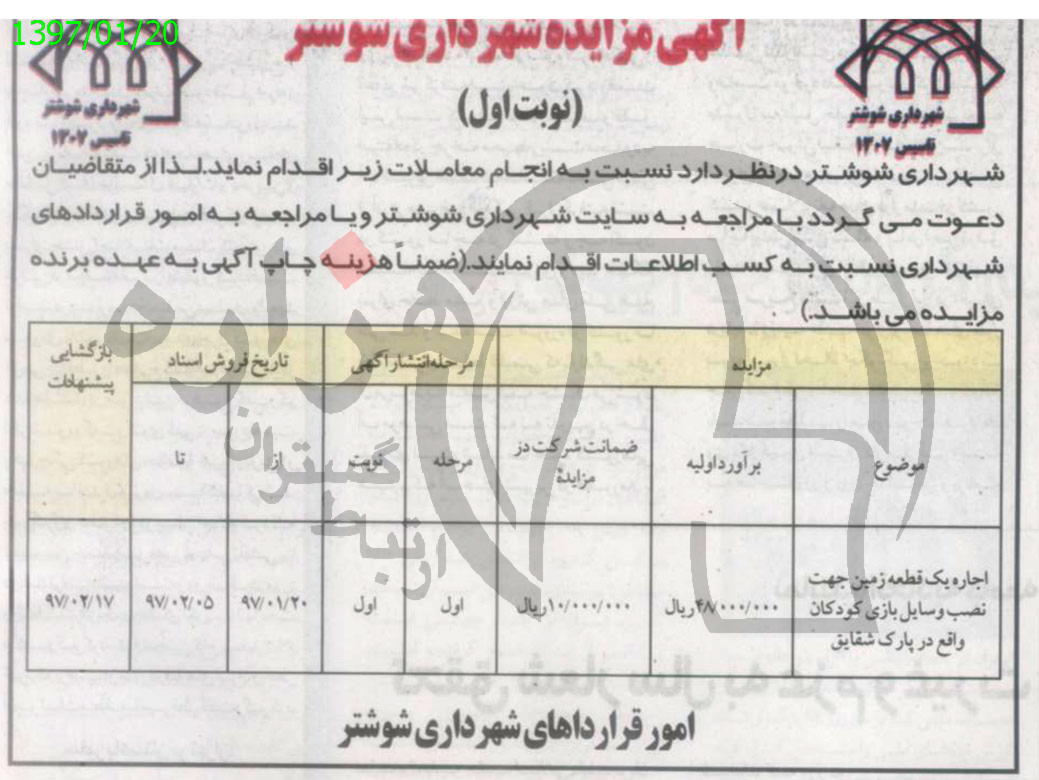 1397/01/20
آگهی مزایده شهرداری شوشتر
(نوبت اول)
شهرداری شوشتر
تاسیس ۱۳۰۲
شهرداری شوشتر
تاسیس ۱۳۰۲
شهرداری شوشتر درنظر دارد نسبت به انجام معاملات زیر اقدام نماید.لذا از متقاضیان
دعوت می گردد با مراجعه به سایت شهرداری شوشتر و یا مراجعه به امور قراردادهای
شهرداری نسبت به کسب اطلاعات اقدام نمایند.(ضمناً هزینه چاپ آگهی به عهده برنده
مزایده می باشد.)
مزایده
مرحله انتشار آگهی
تاریخ فروش اسناد
بازگشایی
پیشنهادات
موضوع
برآورد اولیه
ضمانت شرکت در
مزایده
مرحله
نوبت
از
تا
اجاره یک قطعه زمین جهت
نصب وسایل بازی کودکان
واقع در پارک شقایق
۴/۷۰۰۰/۰۰۰ریال
۱۰/۰۰۰/۰۰۰ریال
اول
اول
۹۷/۰۱/۲۰
۹۷/۰۲/۰۵
۹۷/۰۲/۱۷
هزاره
ارتباط گستران
امور قرارداهای شهرداری شوشتر